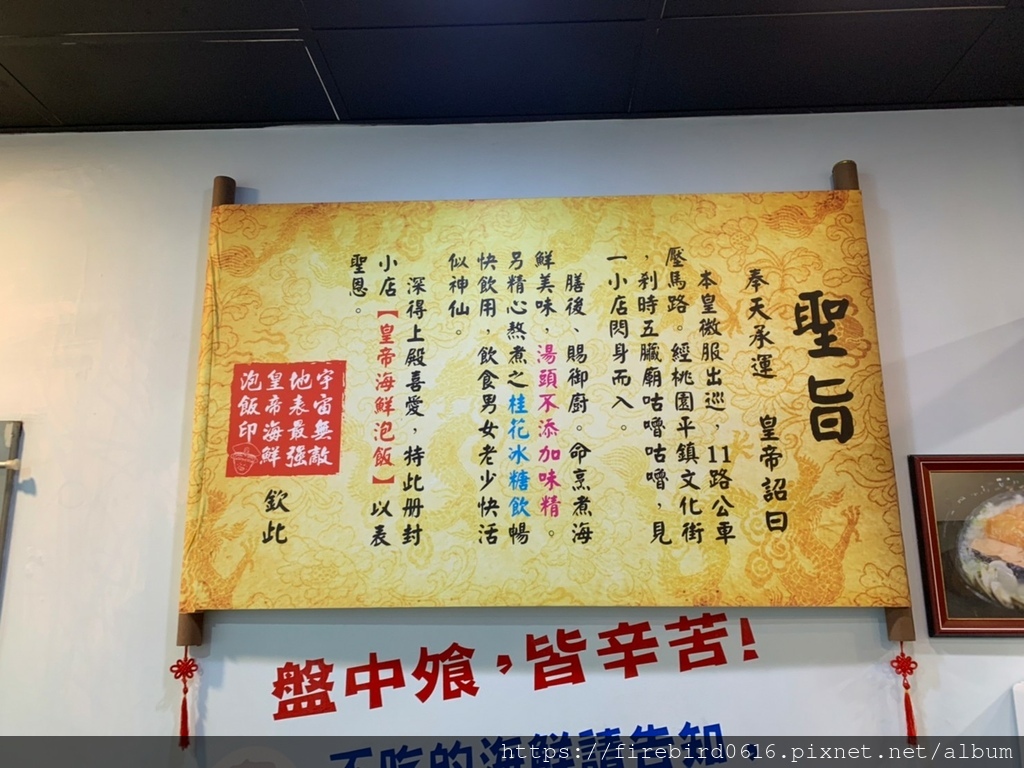 聖旨
奉天承運 皇帝詔曰
本皇微服出巡，11路公車
壓馬路。經桃園平鎮文化街
，剎時五臟廟咕嚕咕嚕，見
一小店閃身而入。
膳後、賜御廚。命烹煮海
鮮美味，湯頭不添加味精。
另精心熬煮之桂花冰糖飲暢
快飲用，飲食男女老少快活
似神仙。
深得上殿喜愛，特此册封
小店【皇帝海鮮泡飯】以表
聖恩。
宇宙無敵
地表最強
皇帝海鮮
泡飯印
欽此
盤中飧，皆辛苦！
不吃的海鮮請告知，
https://firebird0616.pixnet.net/album